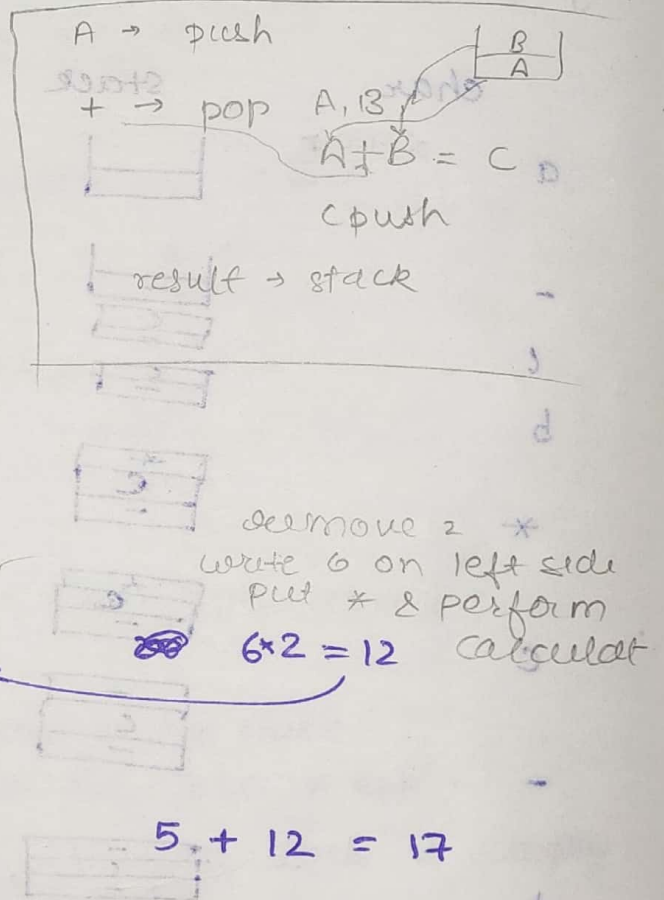 A → push
B
A
+ → pop A, B
A + B = C
C push
result → stack
remove 2 *
write 6 on left side
put * & perform
6*2 = 12 calculat
5 + 12 = 17